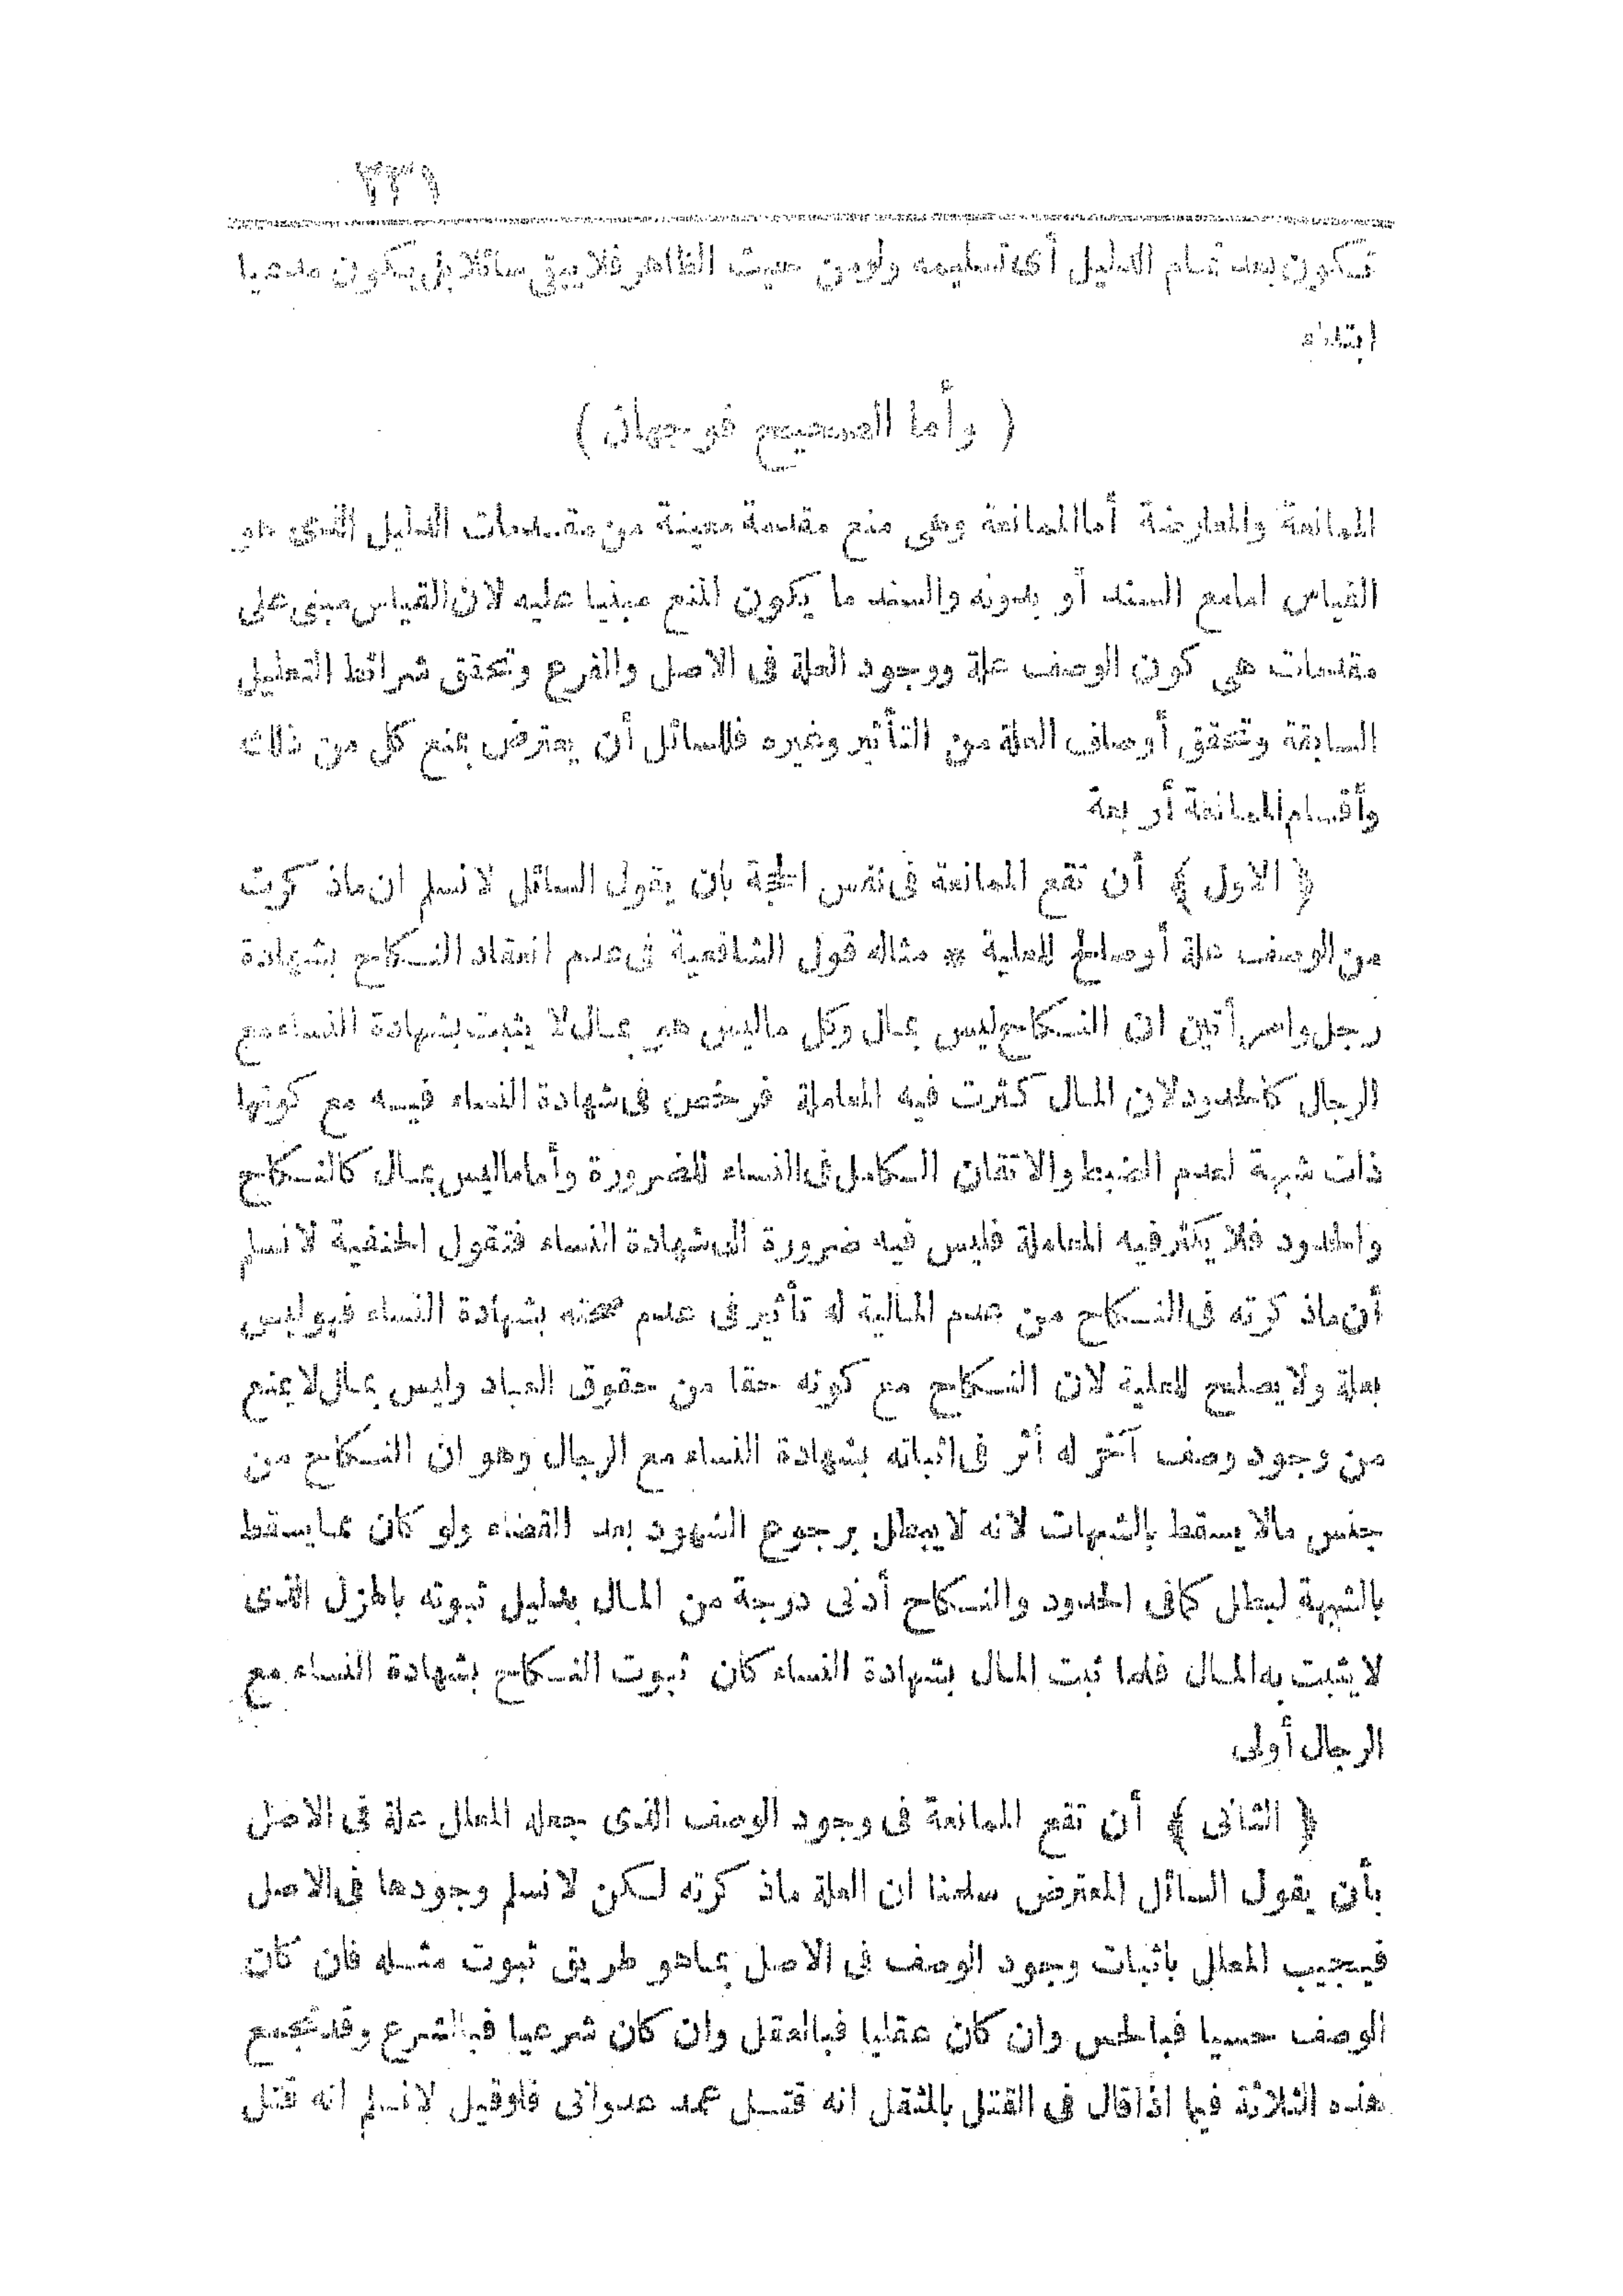 ٣٣٩
تكون بعد تمام الدليل أى تسليمه ولو من حيث الظاهر فلا يبقى سائلا بل يكون مدعيا
ابتداء
( وأما الصحيح فوجهان )
الممانعة والمعارضة أما الممانعة وهى منع مقدمة معينة من مقدمات الدليل الذى هو
القياس اما مع السند أو بدونه والسند ما يكون المنع مبنيا عليه لان القياس مبنى على
مقدمات هى كون الوصف علة ووجود العلة فى الاصل والفرع وتحقق شرائط التعليل
السابقة وتحقق أوصاف العلة من التأثير وغيره فللسائل أن يعترض بمنع كل من ذلك
وأقسام الممانعة أربعة
﴿ الاول ﴾ أن تقع الممانعة فى نفس الحجة بان يقول السائل لا نسلم ان ماذكرت
من الوصف علة أو صالح للعلية * مثاله قول الشافعية فى عدم انعقاد النكاح بشهادة
رجل وامرأتين ان النكاح ليس بمال وكل ماليس هو بمال لا يثبت بشهادة النساء مع
الرجال كالحدود لان المال كثرت فيه المعاملة فرخص فى شهادة النساء فيه مع كونها
ذات شبهة لعدم الضبط والاتقان الكامل فى النساء للضرورة وأما ماليس بمال كالنكاح
والحدود فلا يكثر فيه المعاملة فليس فيه ضرورة الى شهادة النساء فتقول الحنفية لا نسلم
أن ماذكرته فى النكاح من عدم المالية له تأثير فى عدم صحته بشهادة النساء فهو ليس
بعلة ولا يصلح للعلية لان النكاح مع كونه حقا من حقوق العباد وليس بمال لا يمنع
من وجود وصف آخر له أثر فى اثباته بشهادة النساء مع الرجال وهو ان النكاح من
جنس مالا يسقط بالشبهات لانه لا يبطل برجوع الشهود بعد القضاء ولو كان مما يسقط
بالشبهة لبطل كما فى الحدود والنكاح أدنى درجة من المال بدليل ثبوته بالهزل الذى
لا يثبت به المال فلما ثبت المال بشهادة النساء كان ثبوت النكاح بشهادة النساء مع
الرجال أولى
﴿ الثانى ﴾ أن تقع الممانعة فى وجود الوصف الذى جعله المعلل علة فى الاصل
بأن يقول السائل المعترض سلمنا ان العلة ماذكرته لكن لا نسلم وجودها فى الاصل
فيجيب المعلل باثبات وجود الوصف فى الاصل بما هو طريق ثبوت مثله فان كان
الوصف حسيا فبالحس وان كان عقليا فبالعقل وان كان شرعيا فبالشرع وقد تجتمع
هذه الثلاثة فيما اذا قال فى القتل بالمثقل انه قتل عمد عدوانى فلو قيل لا نسلم انه قتل